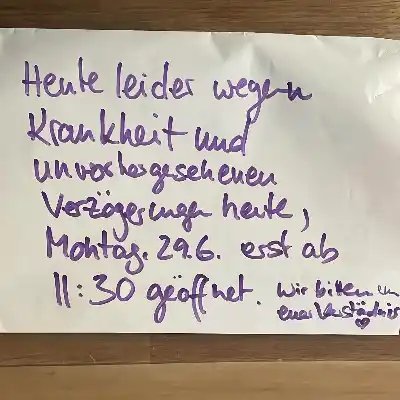 Heute leider wegen
Krankheit und
unvorhergesehenen
Verzögerungen heute,
Montag. 29.6. erst ab
11:30 geöffnet. Wir bitten um
euer Verständnis